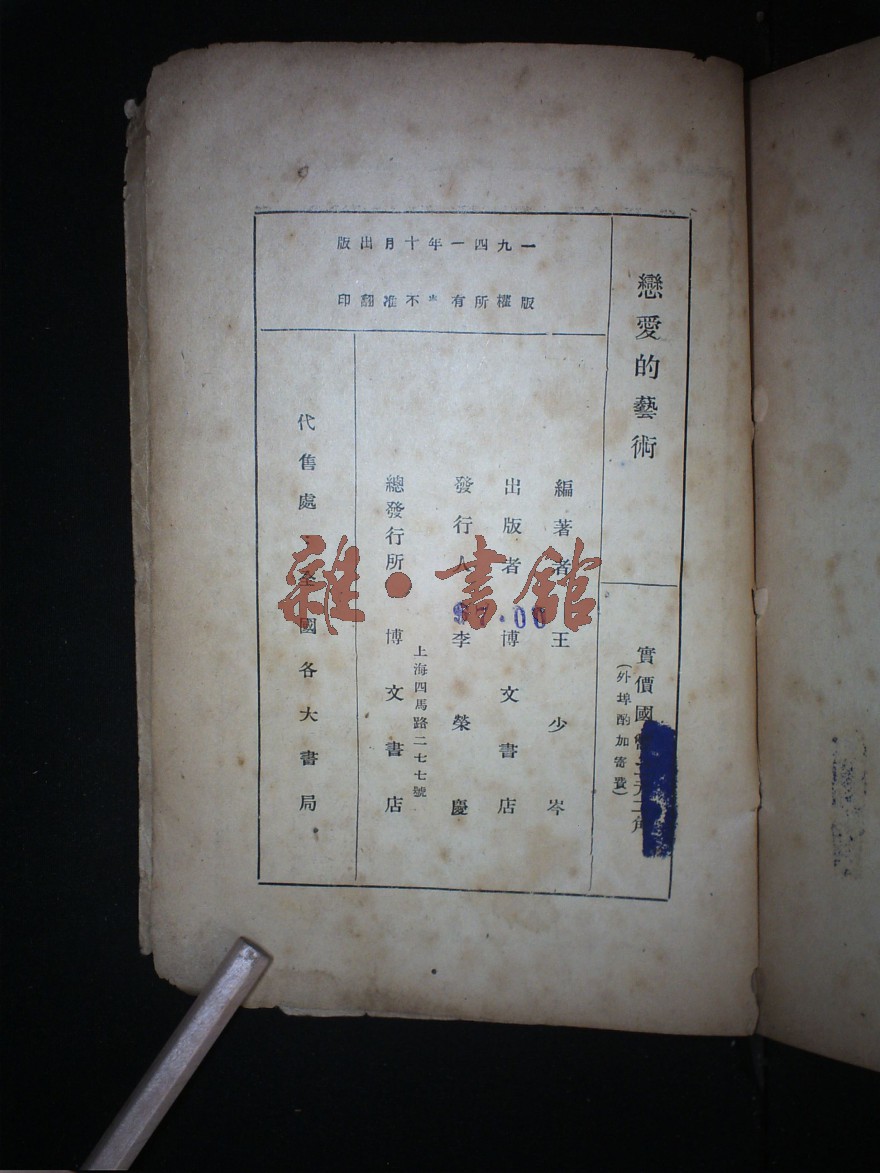 戀愛的藝術
實價國幣二元二角
(外埠酌加寄費)
一九四一年十月出版
版權所有 不准翻印
編著者 王少岑
出版者 博文書店
發行人 李榮慶
總發行所 博文書店
上海四馬路二七七號
代售處 全國各大書局
雜·書館